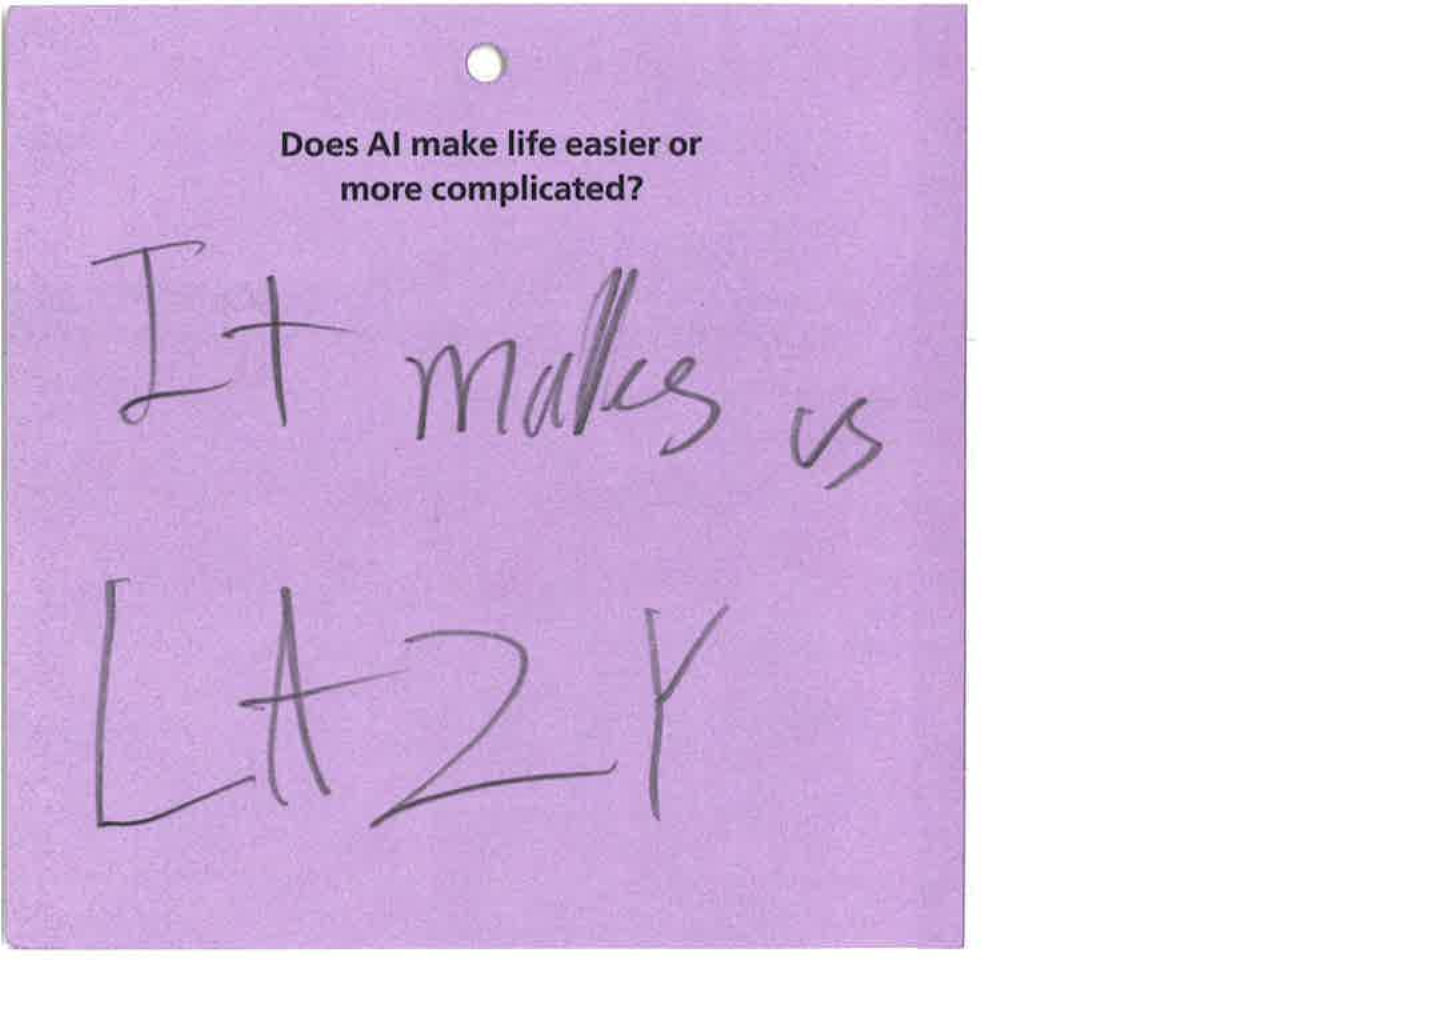 Does AI make life easier or
more complicated?
It makes us
LAZY